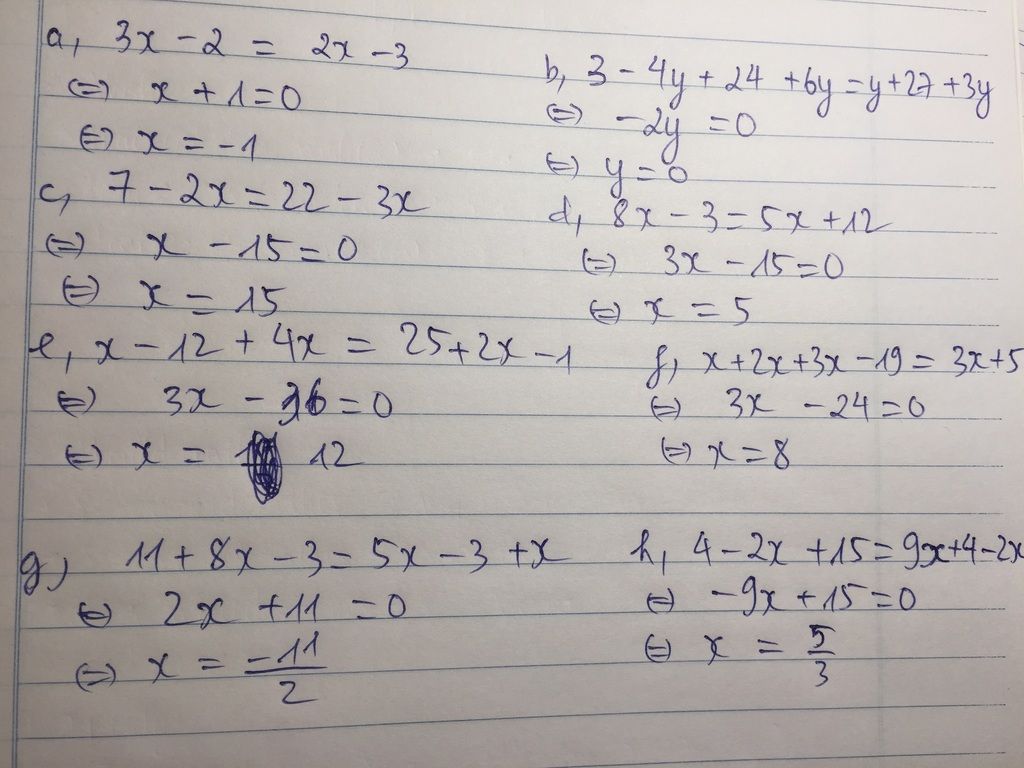 a, 3x - 2 = 2x - 3
(=) x + 1 = 0
(=) x = -1
b, 3 - 4y + 24 + 6y = y + 27 + 3y
(=) -2y = 0
(=) y = 0
c, 7 - 2x = 22 - 3x
(=) x - 15 = 0
(=) x = 15
d, 8x - 3 = 5x + 12
(=) 3x - 15 = 0
(=) x = 5
e, x - 12 + 4x = 25 + 2x - 1
(=) 3x - 36 = 0
(=) x = 12
f, x + 2x + 3x - 19 = 3x + 5
(=) 3x - 24 = 0
(=) x = 8
g, 11 + 8x - 3 = 5x - 3 + x
(=) 2x + 11 = 0
(=) x = -11/2
h, 4 - 2x + 15 = 9x + 4 - 2x
(=) -9x + 15 = 0
(=) x = 5/3